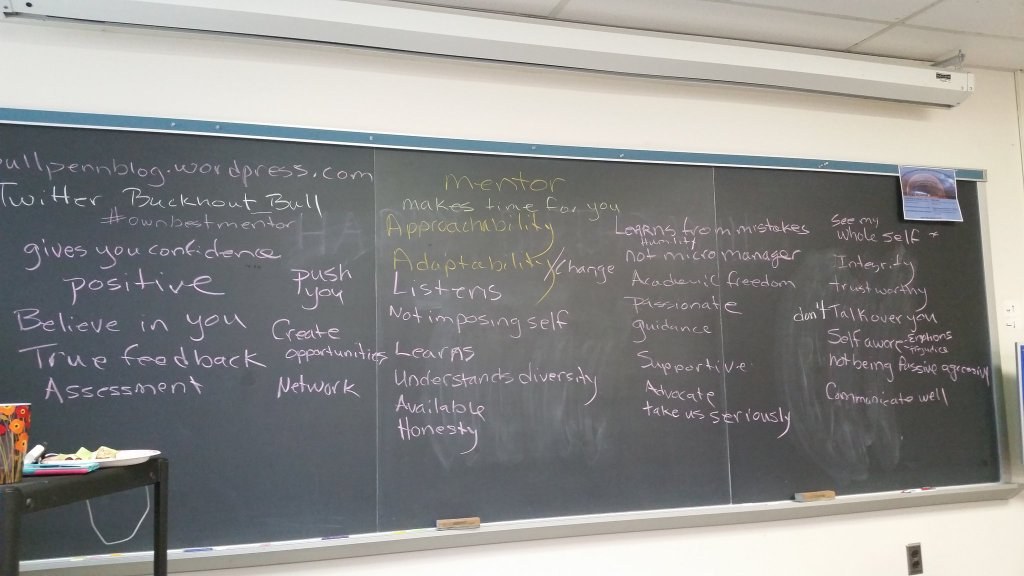 ullpennblog.wordpress.com
Twitter Bucknout_Bull
#ownbestmentor
gives you confidence
positive
Believe in you
True feedback
Assessment
push
you
Create
opportunities
Network
mentor
makes time for you
Approachability
Adaptability/change
Listens
Not imposing self
Learns
Understands diversity
Available
Honesty
Learns from mistakes
Humility
not micromanager
Academic freedom
Passionate
guidance
Supportive
Advocate
take us seriously
See my
whole self *
Integrity
trustworthy
don't Talk over you
Self aware - Emotions
not being passive aggressive
Communicate well